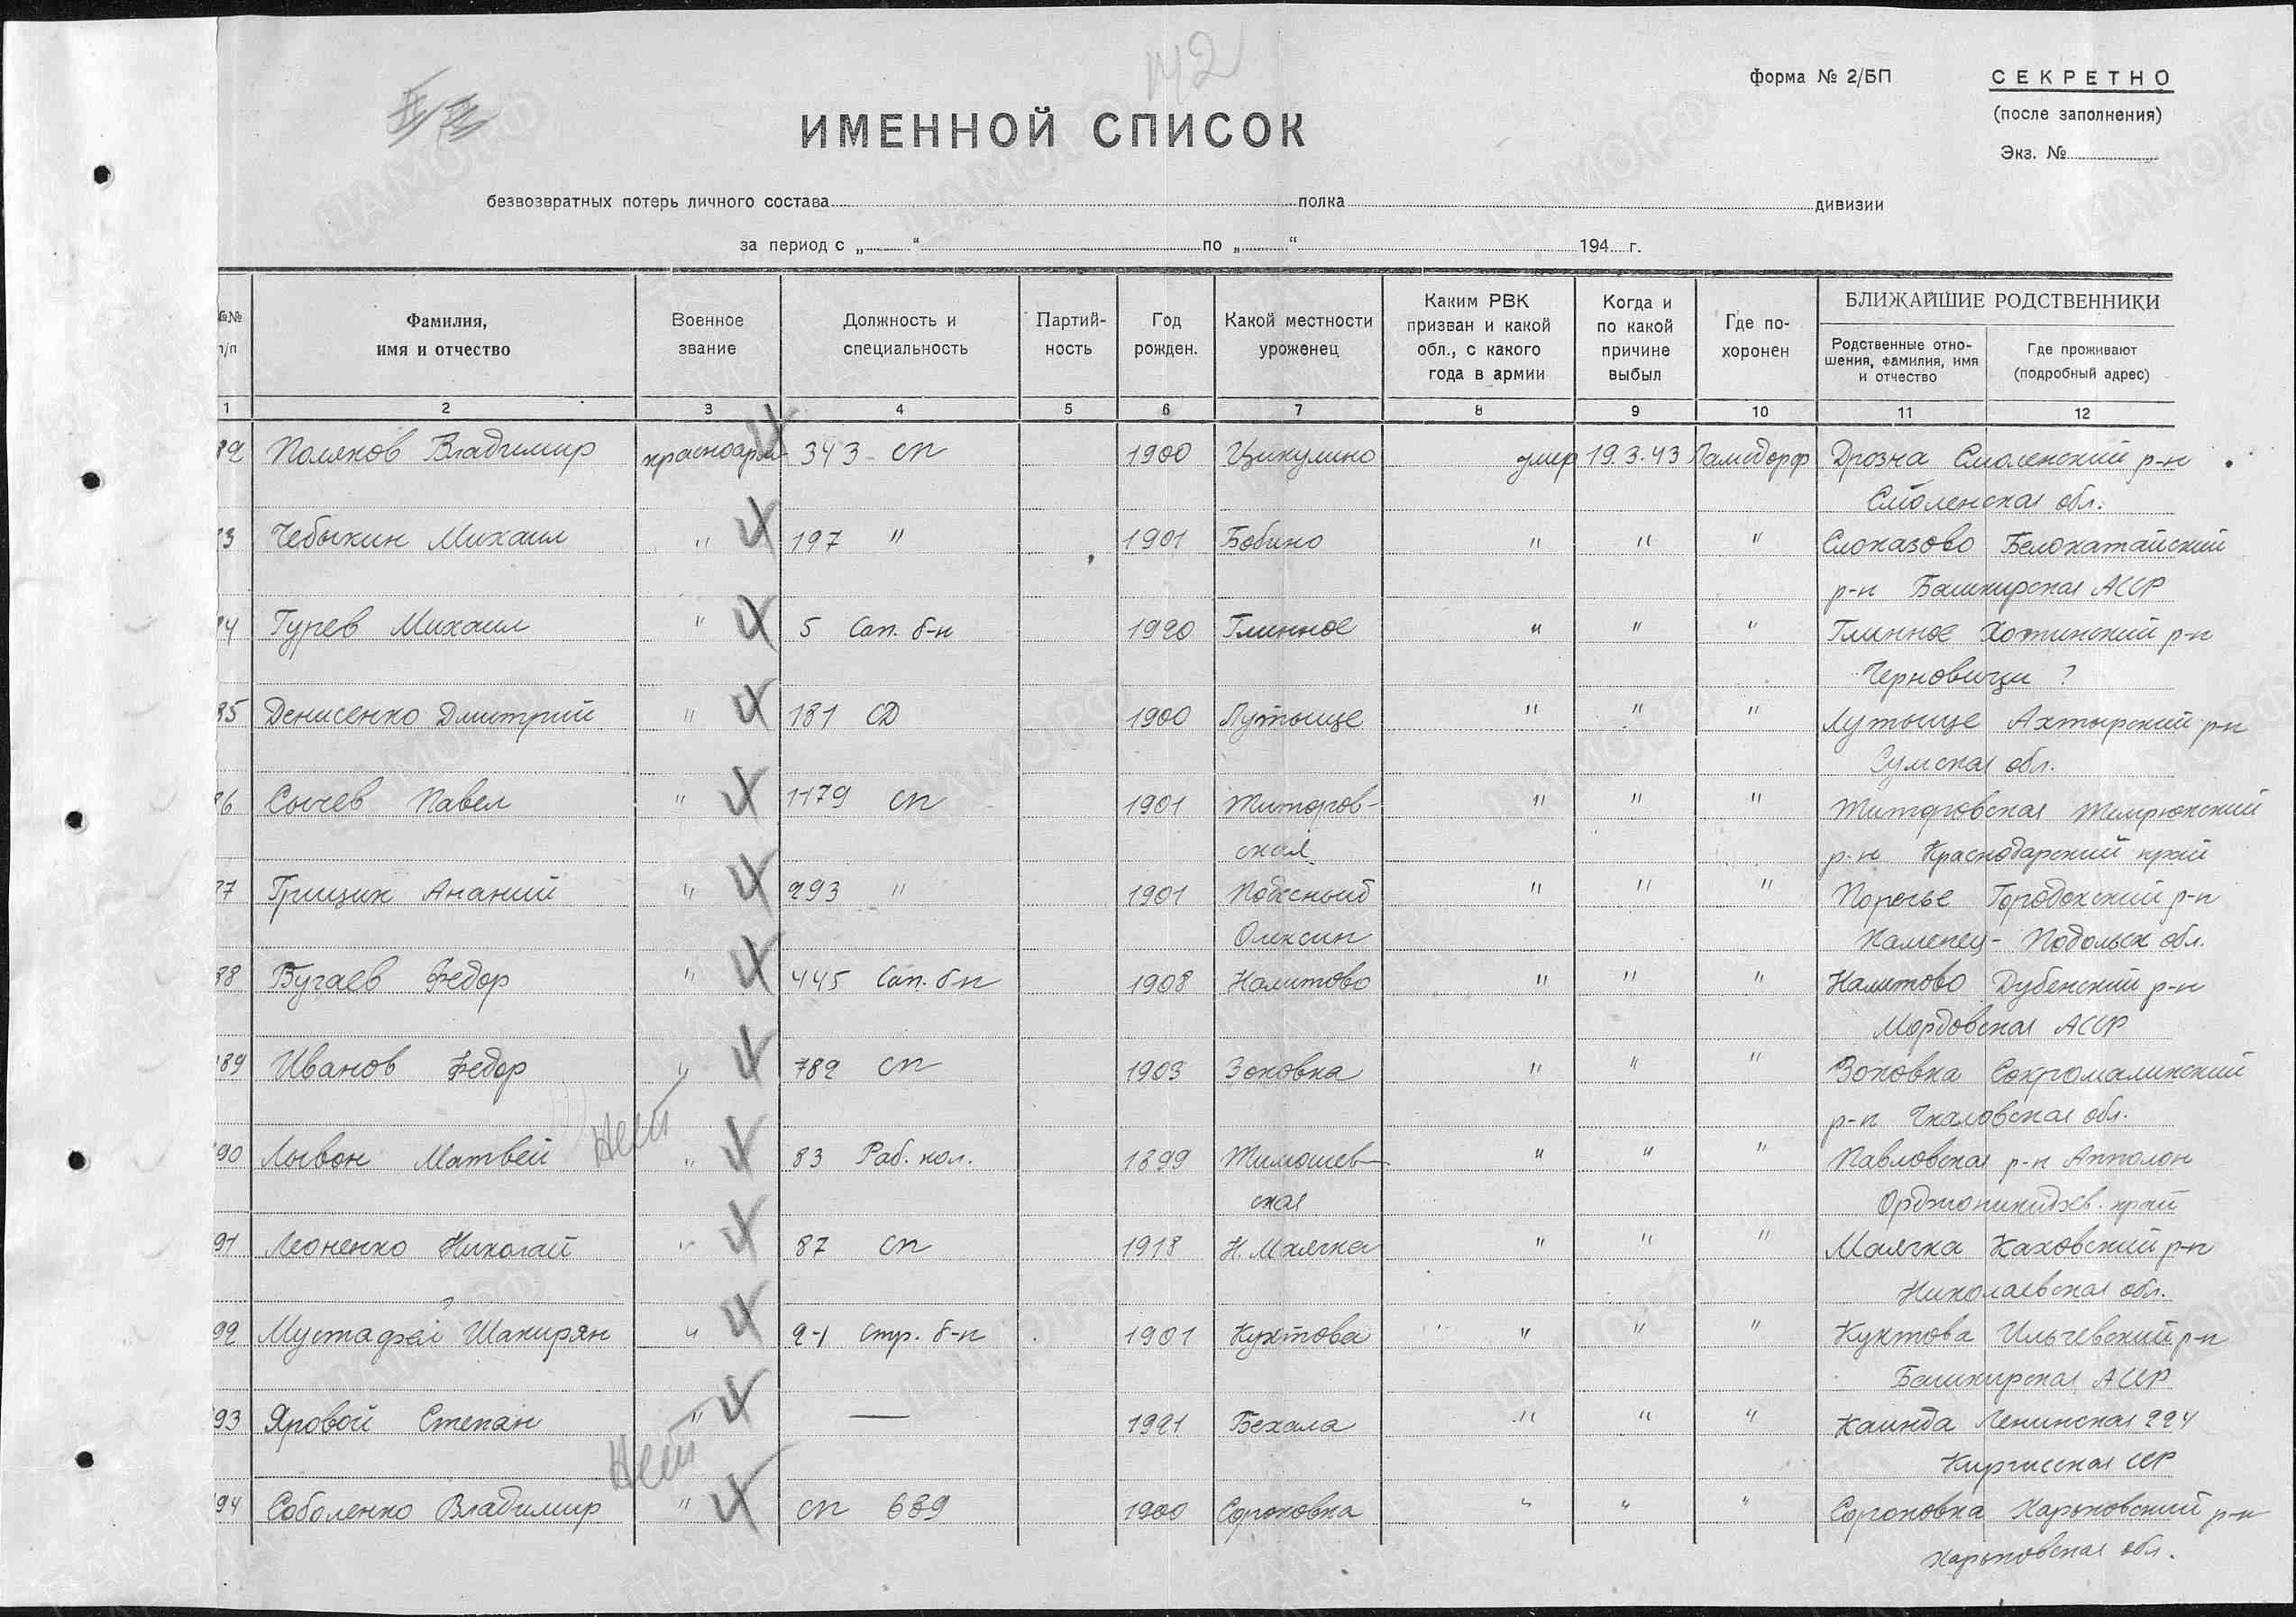 142
форма № 2/БП
СЕКРЕТНО
(после заполнения)
Экз. №
ИМЕННОЙ СПИСОК
безвозвратных потерь личного состава полка дивизии
за период с „ “ по „ “ 194 г.
№№ п/п
Фамилия, имя и отчество
Военное звание
Должность и специальность
Партий-ность
Год рожден.
Какой местности уроженец
Каким РВК призван и какой обл., с какого года в армии
Когда и по какой причине выбыл
Где по-хоронен
БЛИЖАЙШИЕ РОДСТВЕННИКИ
Родственные отно-шения, фамилия, имя и отчество
Где проживают (подробный адрес)
1 2 3 4 5 6 7 8 9 10 11 12
82 Поляков Владимир красноарм 343 сп 1900 Цикулино умер 19.3.43 Ламсдорф Дрозна Смоленский р-н
Смоленская обл.
83 Чебыкин Михаил " 197 " 1901 Бобино " " " Слоказово Белокатайский
р-н Башкирская АССР
84 Гурев Михаил " 5 Сап. б-н 1920 Глинное " " " Глинное Хотинский р-н
Черновици ?
85 Денисенко Дмитрий " 181 СД 1900 Лутыще " " " Лутыще Ахтырский р-н
Сумская обл.
86 Сычев Павел " 1179 сп 1901 Титоров-
ская " " " Титоровская Темрюкский
р-н Краснодарский край
87 Грищик Ананий " 293 " 1901 Побесный
Олексин " " " Поречье Городокский р-н
Каменец-Подольск обл.
88 Бугаев Федор " 445 Сап. б-н 1908 Налитово " " " Налитово Дубенский р-н
Мордовская АССР
89 Иванов Федор " 782 сп 1903 Зоковка " " " Зоковка Сокромалинский
р-н Чкаловская обл.
Нет
90 Лывон Матвей " 83 Раб. кол. 1899 Тимошев-
ская " " " Павловская р-н Апполон
Орджоникидзев. край
91 Леоненко Николай " 87 сп 1918 Н. Маячка " " " Маячка Каховский р-н
Николаевская обл.
?
92 Мустафай Шакирян " 2-1 стр. б-н 1901 Куктова " " " Куктова Ильчевский р-н
Башкирская АССР
93 Яровой Степан " — 1921 Бехала " " " Каинда Ленинская 224
Киргисская ССР
Нет
94 Соболенко Владимир " сп 689 1900 Сороковка " " " Сороковка Харьковский р-н
Харьковская обл.